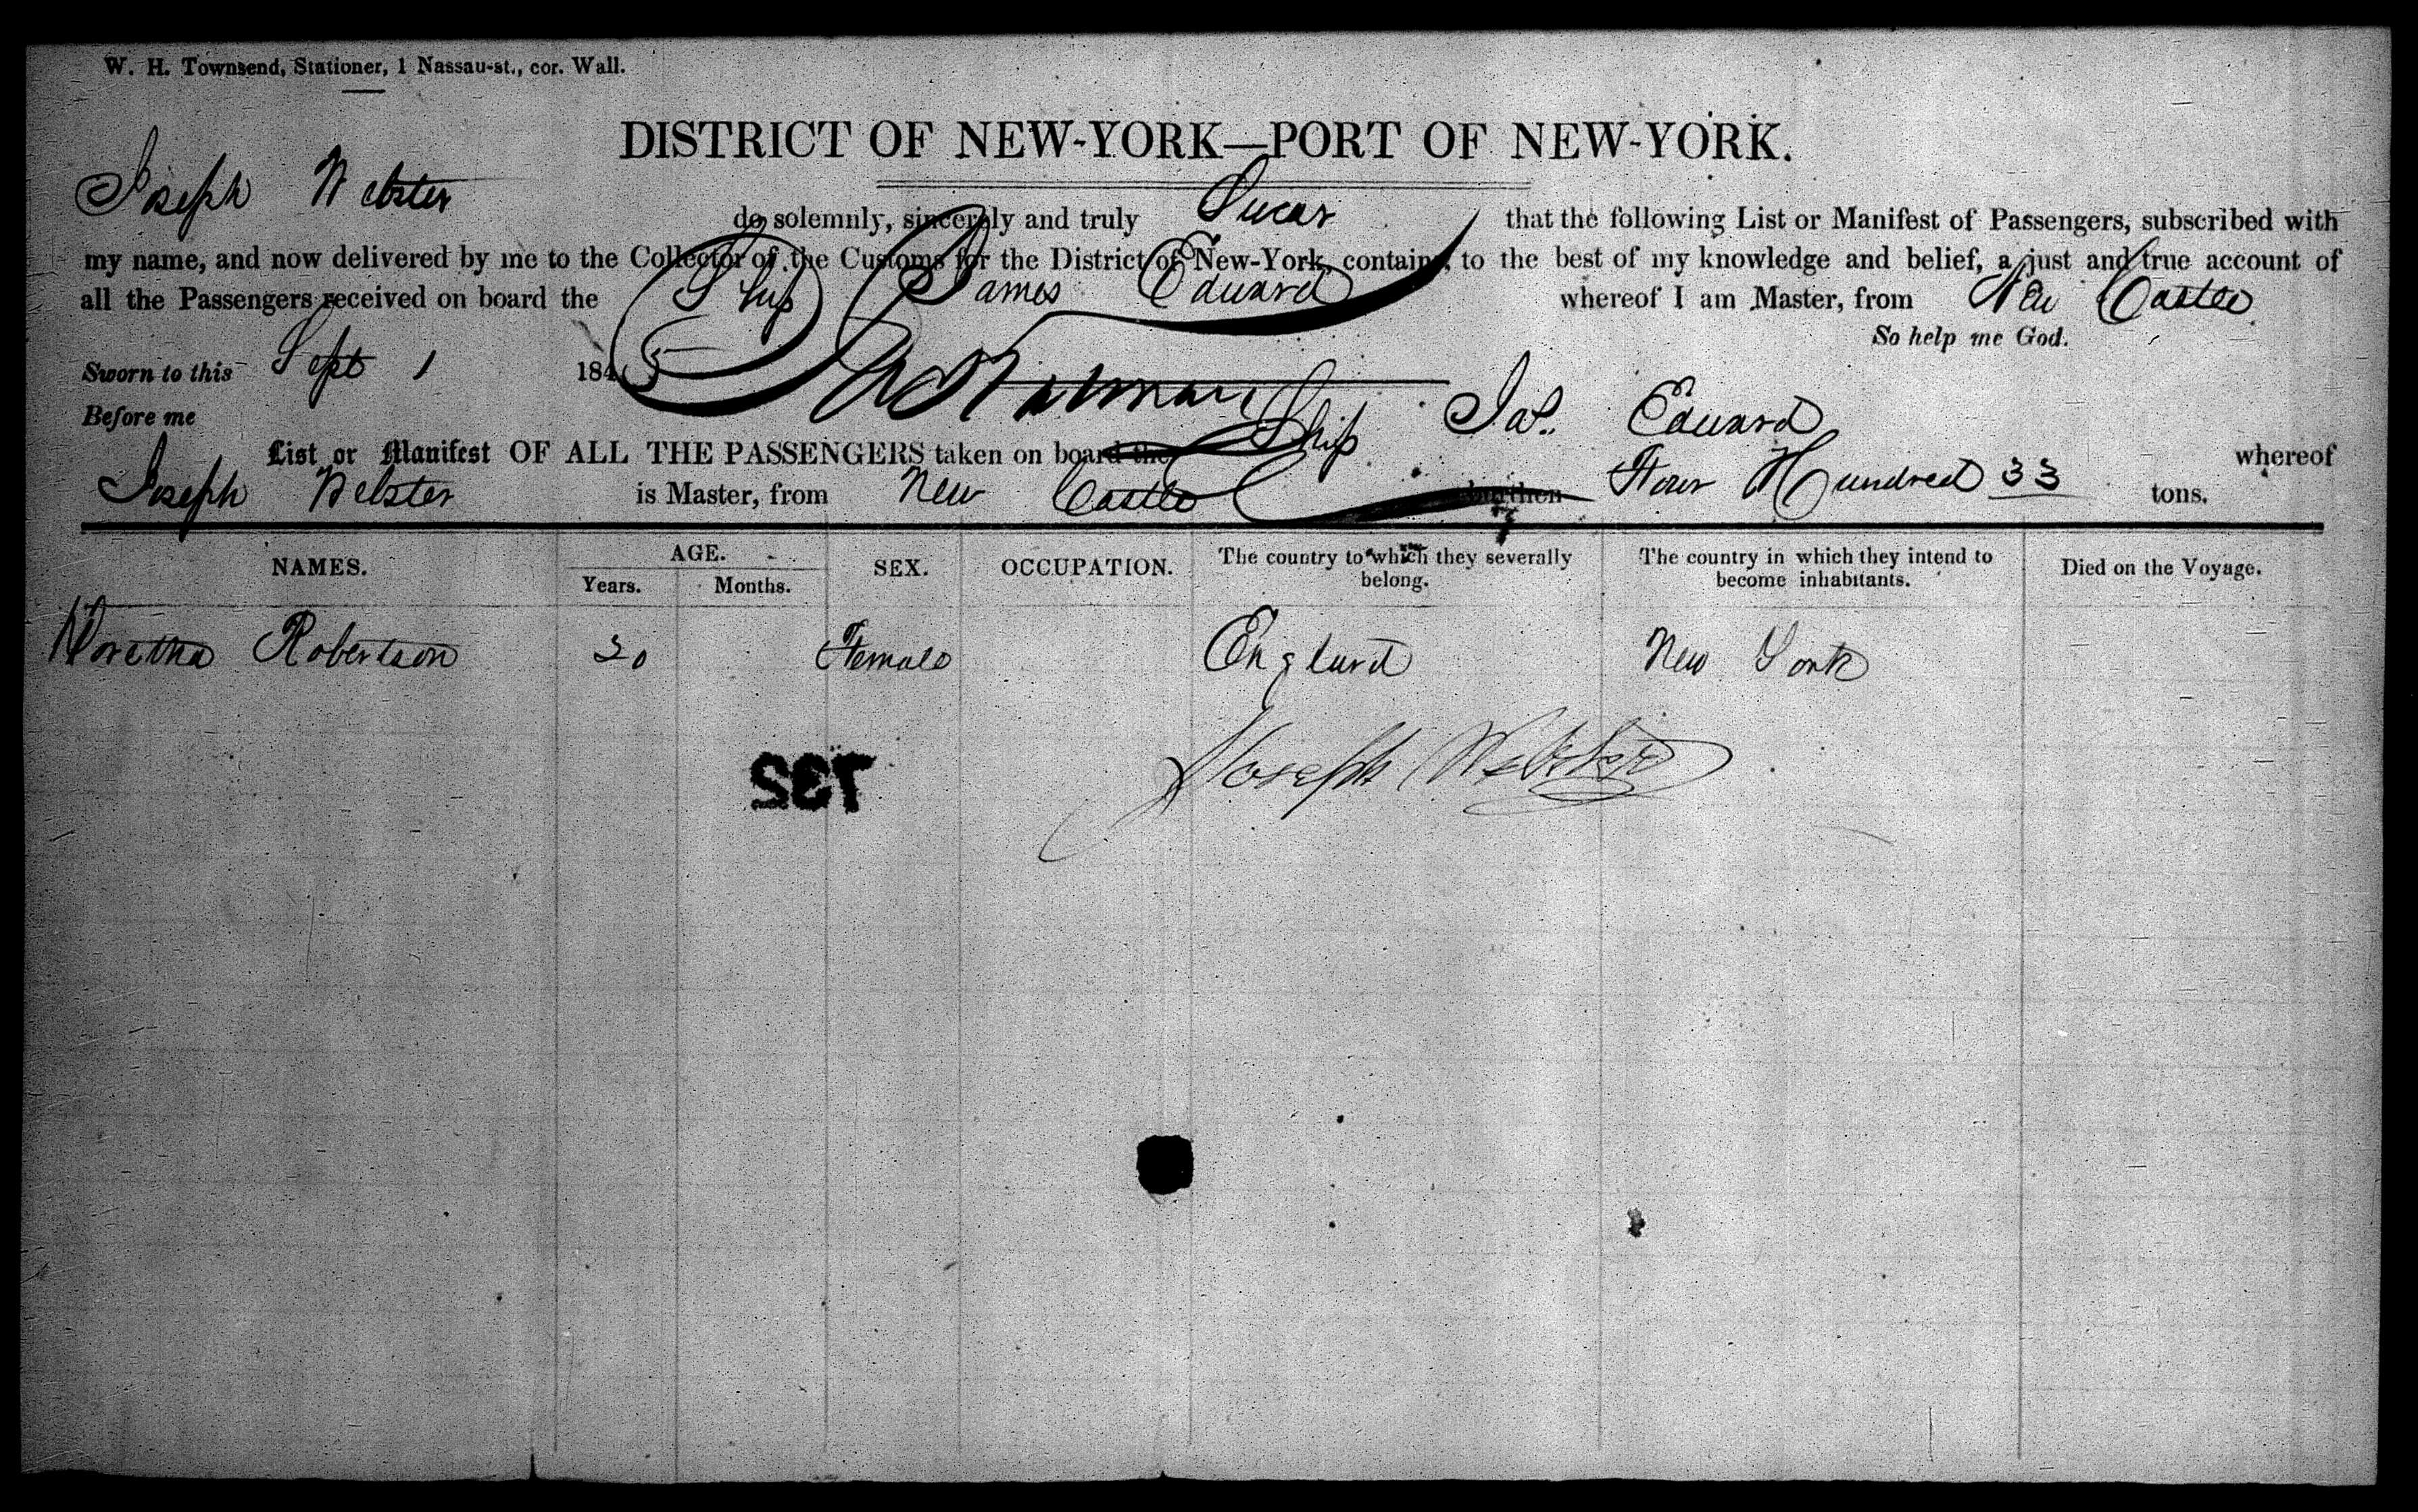 W. H. Townsend, Stationer, 1 Nassau-st., cor. Wall.
DISTRICT OF NEW-YORK—PORT OF NEW-YORK.
Joseph Webster do solemnly, sincerely and truly Swear that the following List or Manifest of Passengers, subscribed with
my name, and now delivered by me to the Collector of the Customs for the District of New-York, contains, to the best of my knowledge and belief, a just and true account of
all the Passengers received on board the Ship James Edward whereof I am Master, from New Castle
So help me God.
Sworn to this Sept 1 1845
Before me
List or Manifest OF ALL THE PASSENGERS taken on board the Ship Jas. Edward whereof
Joseph Webster is Master, from New Castle burthen Four Hundred 33 tons.
NAMES. AGE. SEX. OCCUPATION. The country to which they severally belong. The country in which they intend to become inhabitants. Died on the Voyage.
Years. Months.
Robertson 20 Female England New York
Joseph Webster
SET